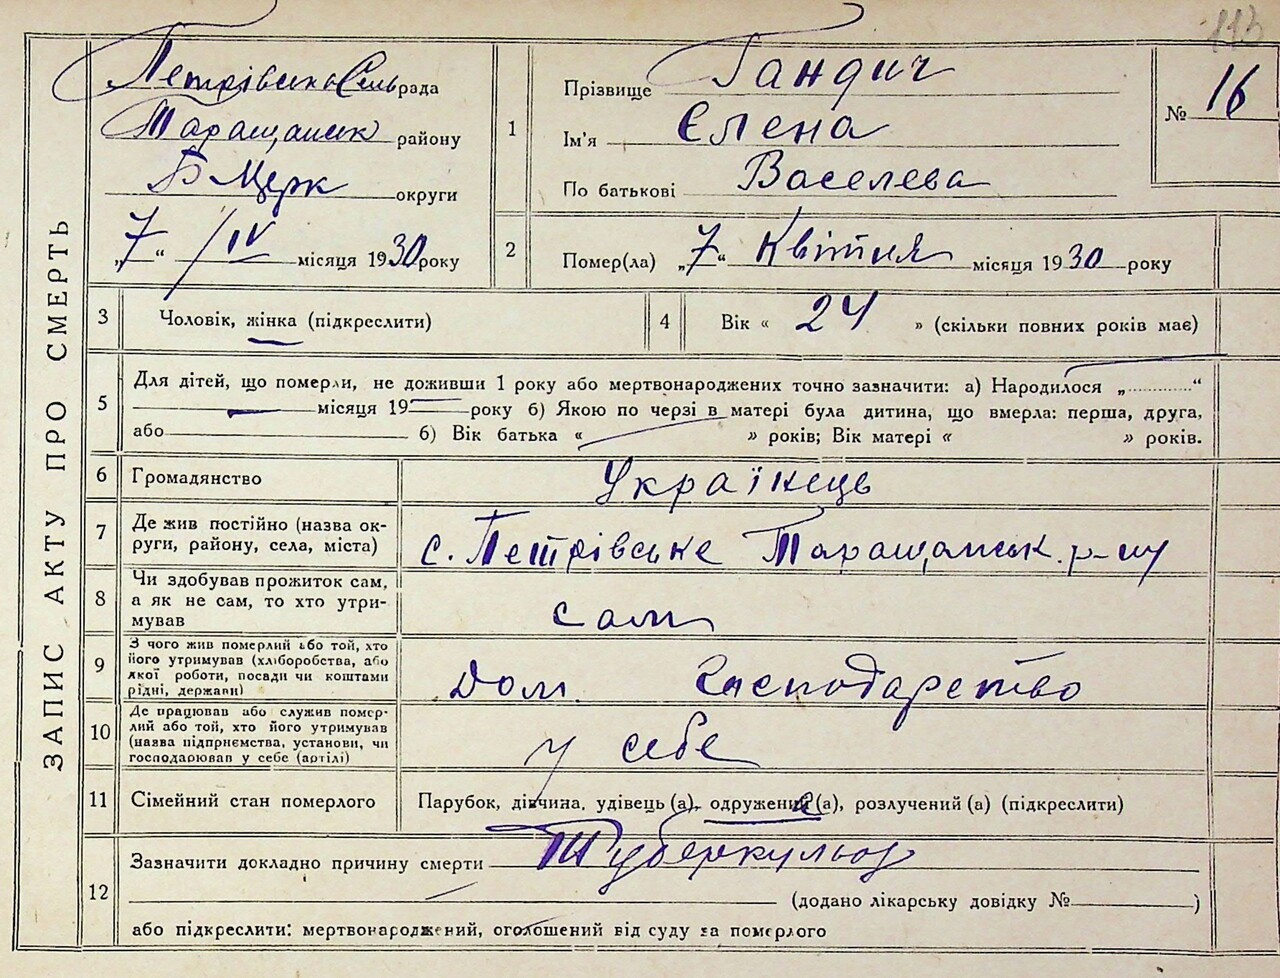 113
ЗАПИС АКТУ ПРО СМЕРТЬ
Петрівська Сельрада
Таращанськ району
Б Церк округи
„7“ /IV місяця 1930 року
1
Прізвище Гандич
Ім'я Єлена
По батькові Васелева
№ 16
2
Помер(ла) „7“ Квітня місяця 1930 року
3
Чоловік, жінка (підкреслити)
4
Вік « 24 » (скільки повних років має)
5
Для дітей, що померли, не доживши 1 року або мертвонароджених точно зазначити: а) Народилося „..........“
місяця 19 року б) Якою по черзі в матері була дитина, що вмерла: перша, друга,
або б) Вік батька « » років; Вік матері « » років.
6
Громадянство
Українець
7
Де жив постійно (назва ок-
руги, району, села, міста)
с. Петрівське Таращанськ. р-ну
8
Чи здобував прожиток сам,
а як не сам, то хто утри-
мував
сам
9
З чого жив померлий або той, хто
його утримував (хліборобства, або
якої роботи, посади чи коштами
рідні, держави)
Дом. Господарство
10
Де працював або служив помер-
лий або той, хто його утримував
(назва підприємства, установи, чи
господарював у себе (артілі)
у себе
11
Сімейний стан померлого
Парубок, дівчина, удівець (а), одружений (а), розлучений (а) (підкреслити)
12
Зазначити докладно причину смерти Туберкульоз
(додано лікарську довідку № )
або підкреслити: мертвонароджений, оголошений від суду за померлого